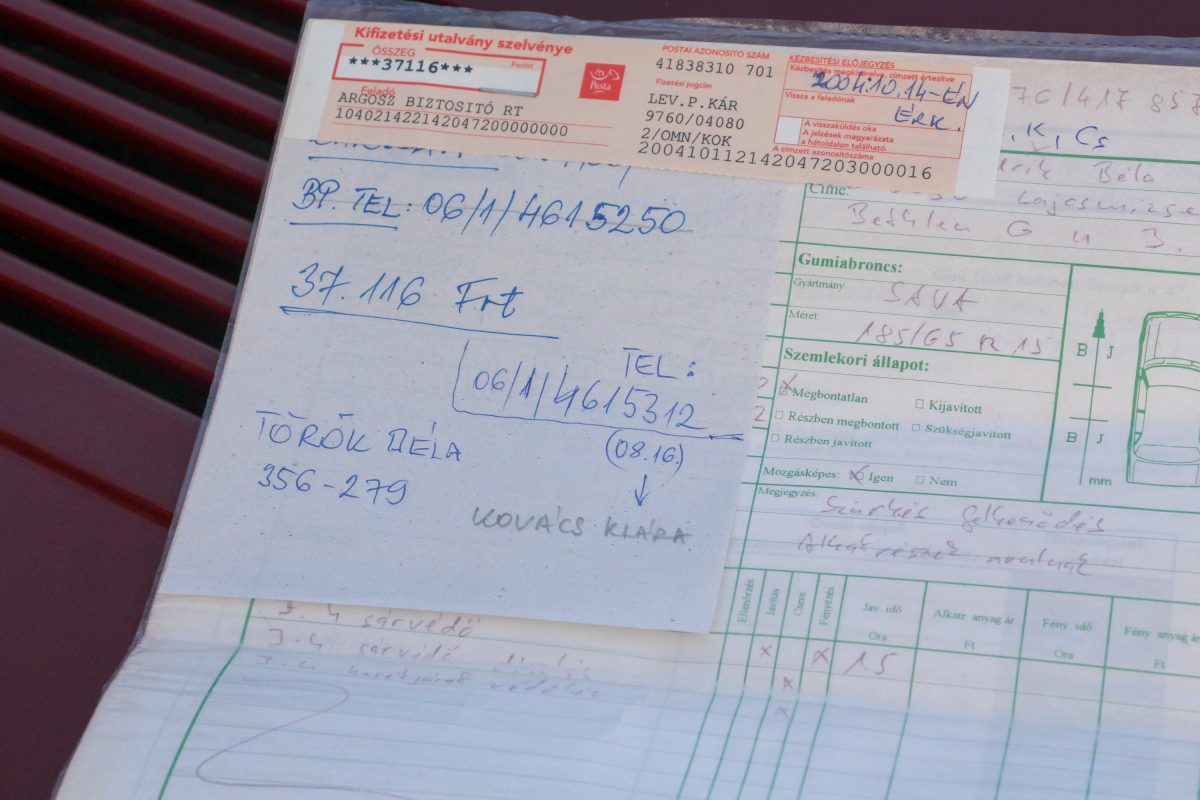 Kifizetési utalvány szelvénye
ÖSSZEG
***37116***
Forint
Feladó
ARGOSZ BIZTOSITÓ RT
104021422142047200000000
Posta
POSTAI AZONOSÍTÓ SZÁM
41838310 701
Fizetési jogcím
LEV.P.KÁR
9760/04080
2/OMN/KOK
20041011214204720300001​6
KÉZBESÍTÉSI ELŐJEGYZÉS
Kézbesítés megkísérelve, címzett értesítve
2004.10.14-ÉN
Vissza a feladónak
ÉRK.
A visszaküldés oka
A jelzések magyarázata
a hátoldalon található.
A címzett azonosítószáma
BP. TEL: 06/1/461.5250
37.116 Frt
TEL:
06/1/4615312
(08.16.)
TÖRÖK BÉLA
356-279
KOVÁCS KLÁRA
76/417 857
, K, Cs
Béla
Címe:
Lajosmizse
Bethlen G u 3.
Gumiabroncs:
Gyártmány
SAVA
Méret:
185/65 R 15
B J
B J
mm
Szemlekori állapot:
Megbontatlan
Kijavított
Részben megbontott
Szükségjavított
Részben javított
Mozgásképes:
Igen
Nem
Megjegyzés:
Ellenőrzés
Javítás
Csere
Fényezés
Jav. idő
Óra
Alkatr. anyag ár
Ft
Fény. idő
Óra
Fény. anyag ár
Ft
J. 4 sárvédő
x x 1.5
J. h. sárvédő
x
x